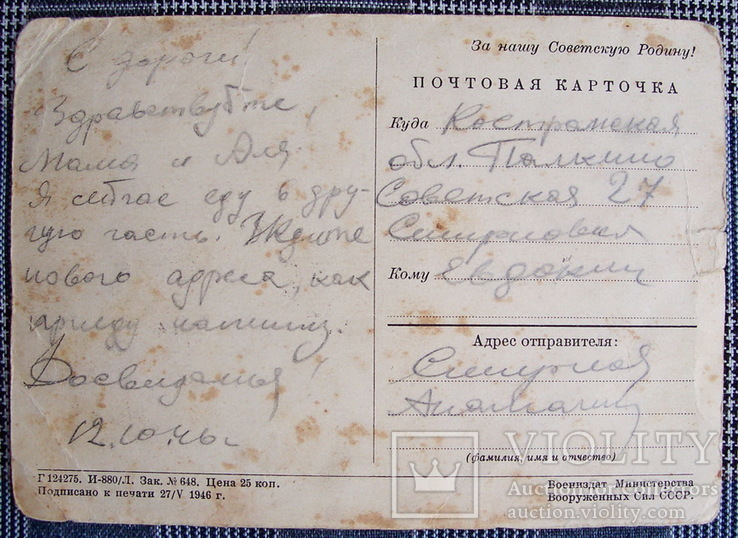 С дороги!
Здравствуйте,
Мама и Аля.
Я сейчас еду в дру-
гую часть. Ждите
нового адреса, как
приеду напишу.
Досвиданья!
12.10.46
За нашу Советскую Родину!
ПОЧТОВАЯ КАРТОЧКА
Куда Костромская
обл. Палкино
Советская 27
Смирновой
Кому Евдокии
Адрес отправителя:
(фамилия, имя и отчество)
Г 124275. И-880/Л. Зак. № 648. Цена 25 коп.
Подписано к печати 27/V 1946 г.
Воениздат Министерства
Вооруженных Сил СССР.
VIOLITY
Auction for collectors
auction.violity.com